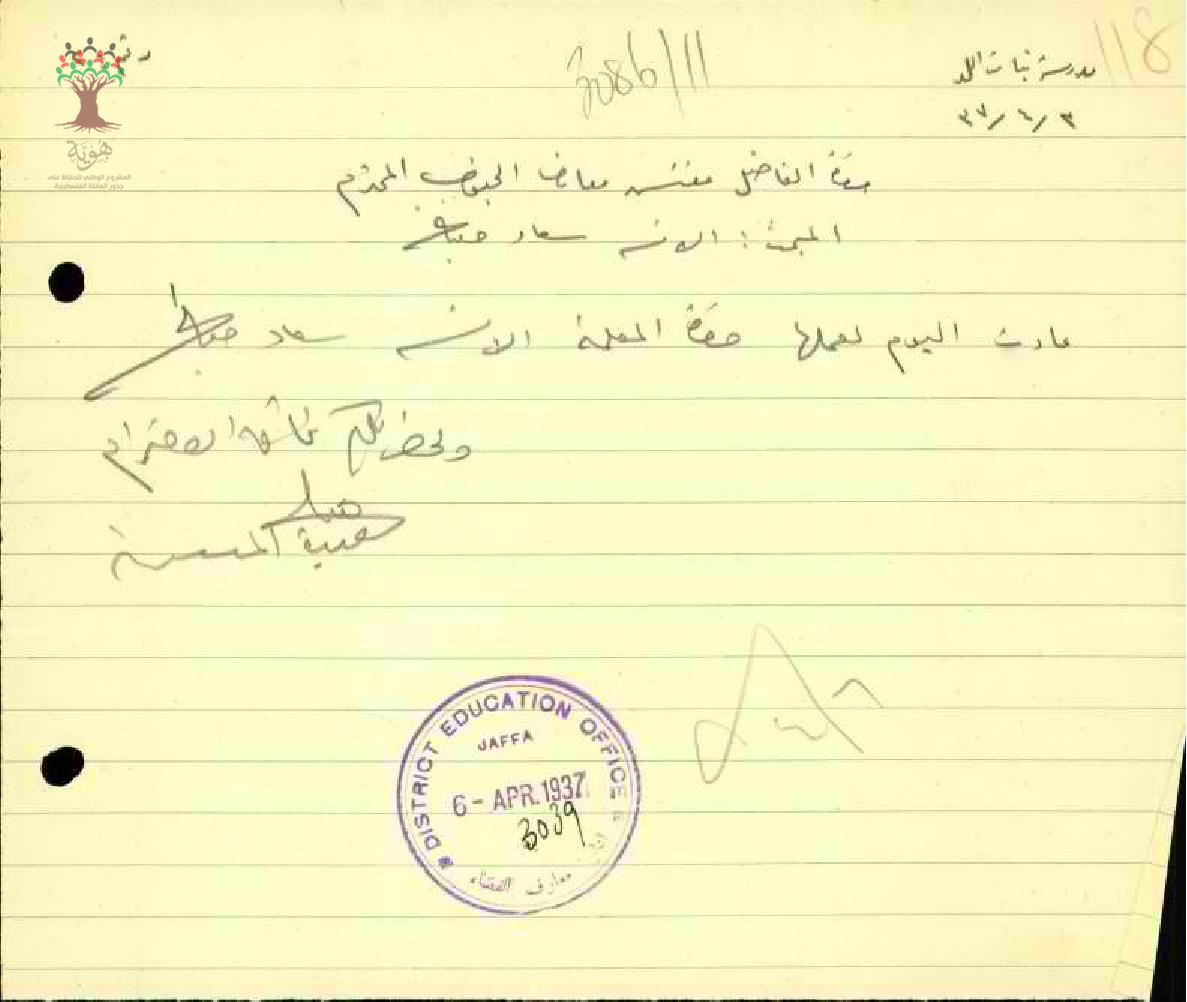 118
3086/11
مدرسة بنات اللد
٣٧/٤/٣
هوية
المشروع الوطني للحفاظ على
جذور العائلة الفلسطينية
حضرة الفاضل مفتش معارف الجنوب المحترم
المبحث : الانسة سعاد
عادت اليوم لعملها حضرة المعلمة الانسة سعاد
ولحضرتكم فائق الاحترام
DISTRICT EDUCATION OFFICE
JAFFA
6 - APR. 1937
3039
معارف القضاء